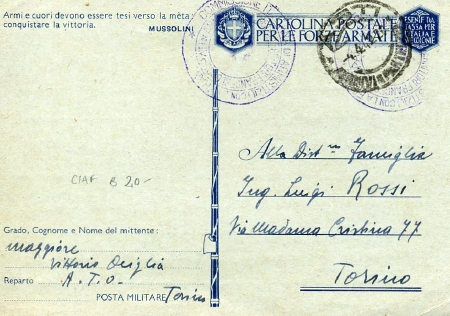 Armi e cuori devono essere tesi verso la mèta:
conquistare la vittoria.
MUSSOLINI
CARTOLINA POSTALE
PER LE FORZE ARMATE
ESENTE DA
TASSA PER
L'ITALIA E
REGIONE
Alla Dist. Famiglia
Ing. Luigi Rossi
Via Madama Cristina 77
Torino
CIAF B 20-
Grado, Cognome e Nome del mittente:
Maggiore
Vittorio
Reparto A.T.O.
POSTA MILITARE Torino